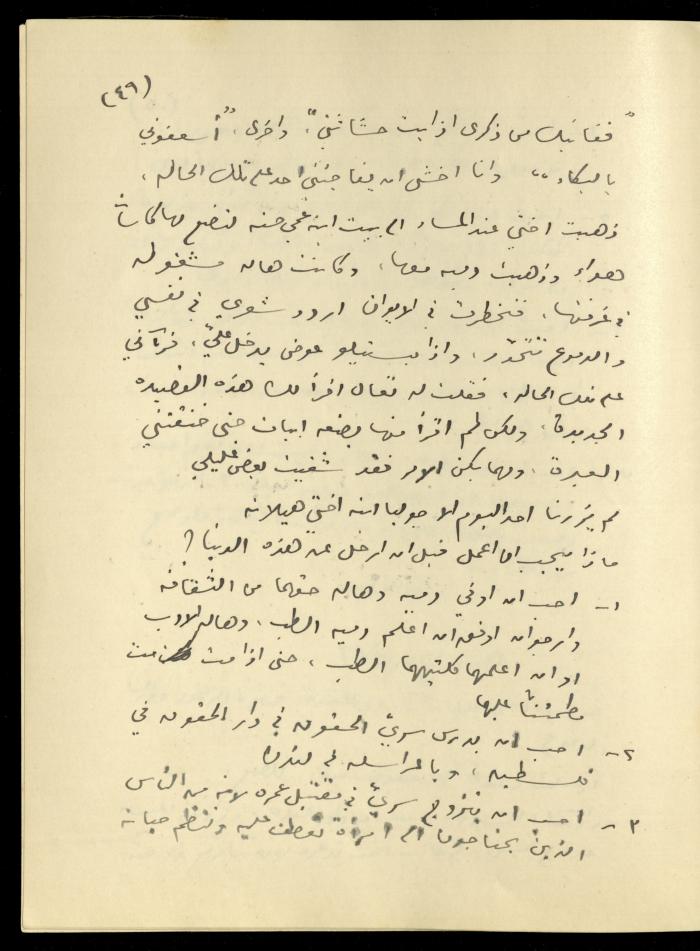 (٤٩)
"فقا نبك من ذكرى اذابت حشاشتي"، واخرى، "أسعفوني
بالبكاء"" وانا اخشى ان يفاجئني احد على تلك الحاله،
ذهبت اختي عند المساء الى بيت ابنة عمي حنه لتضع لها كاسات
هواء وذهبت دميه معها، وكانت هاله مشغوله
في غرفتها، فتخطرت في الايوان اردد شعري في نفسي
والدموع تتحدّر، واذا بستيلو عوض يدخل عليّ، فرآني
على تلك الحاله، فقلت له تعال اقرأ لك هذه القصيده
الجديدة، ولكن لم اقرأ منها بضعه ابيات حتى خنقتني
العبرة، ومهما يكن الامر فقد شفيت بعض غليلي
لم يزرنا احد اليوم الا جوليا ابنه اختي هيلانه
ماذا يجب ان اعمل قبل ان ارحل عن هذه الدنيا؟
١- احب ان اوفي دميه وهاله حقهما من الثقافه
وارجو ان اوفق ان اعلم دميه الطب، وهاله الادب
او ان اعلمهما كلتيهما الطب، حتى اذا مت مت
مطمئناً عليها
٢- احب ان يدرس سريّ الحقوق في دار الحقوق في
فلسطين، وبالمراسله في لندن
٣- احب ان يتزوج سريّ في مقتبل عمره لانه من الناس
الذين يحتاجون الى امرأة تعطف عليه وتنظم حياته